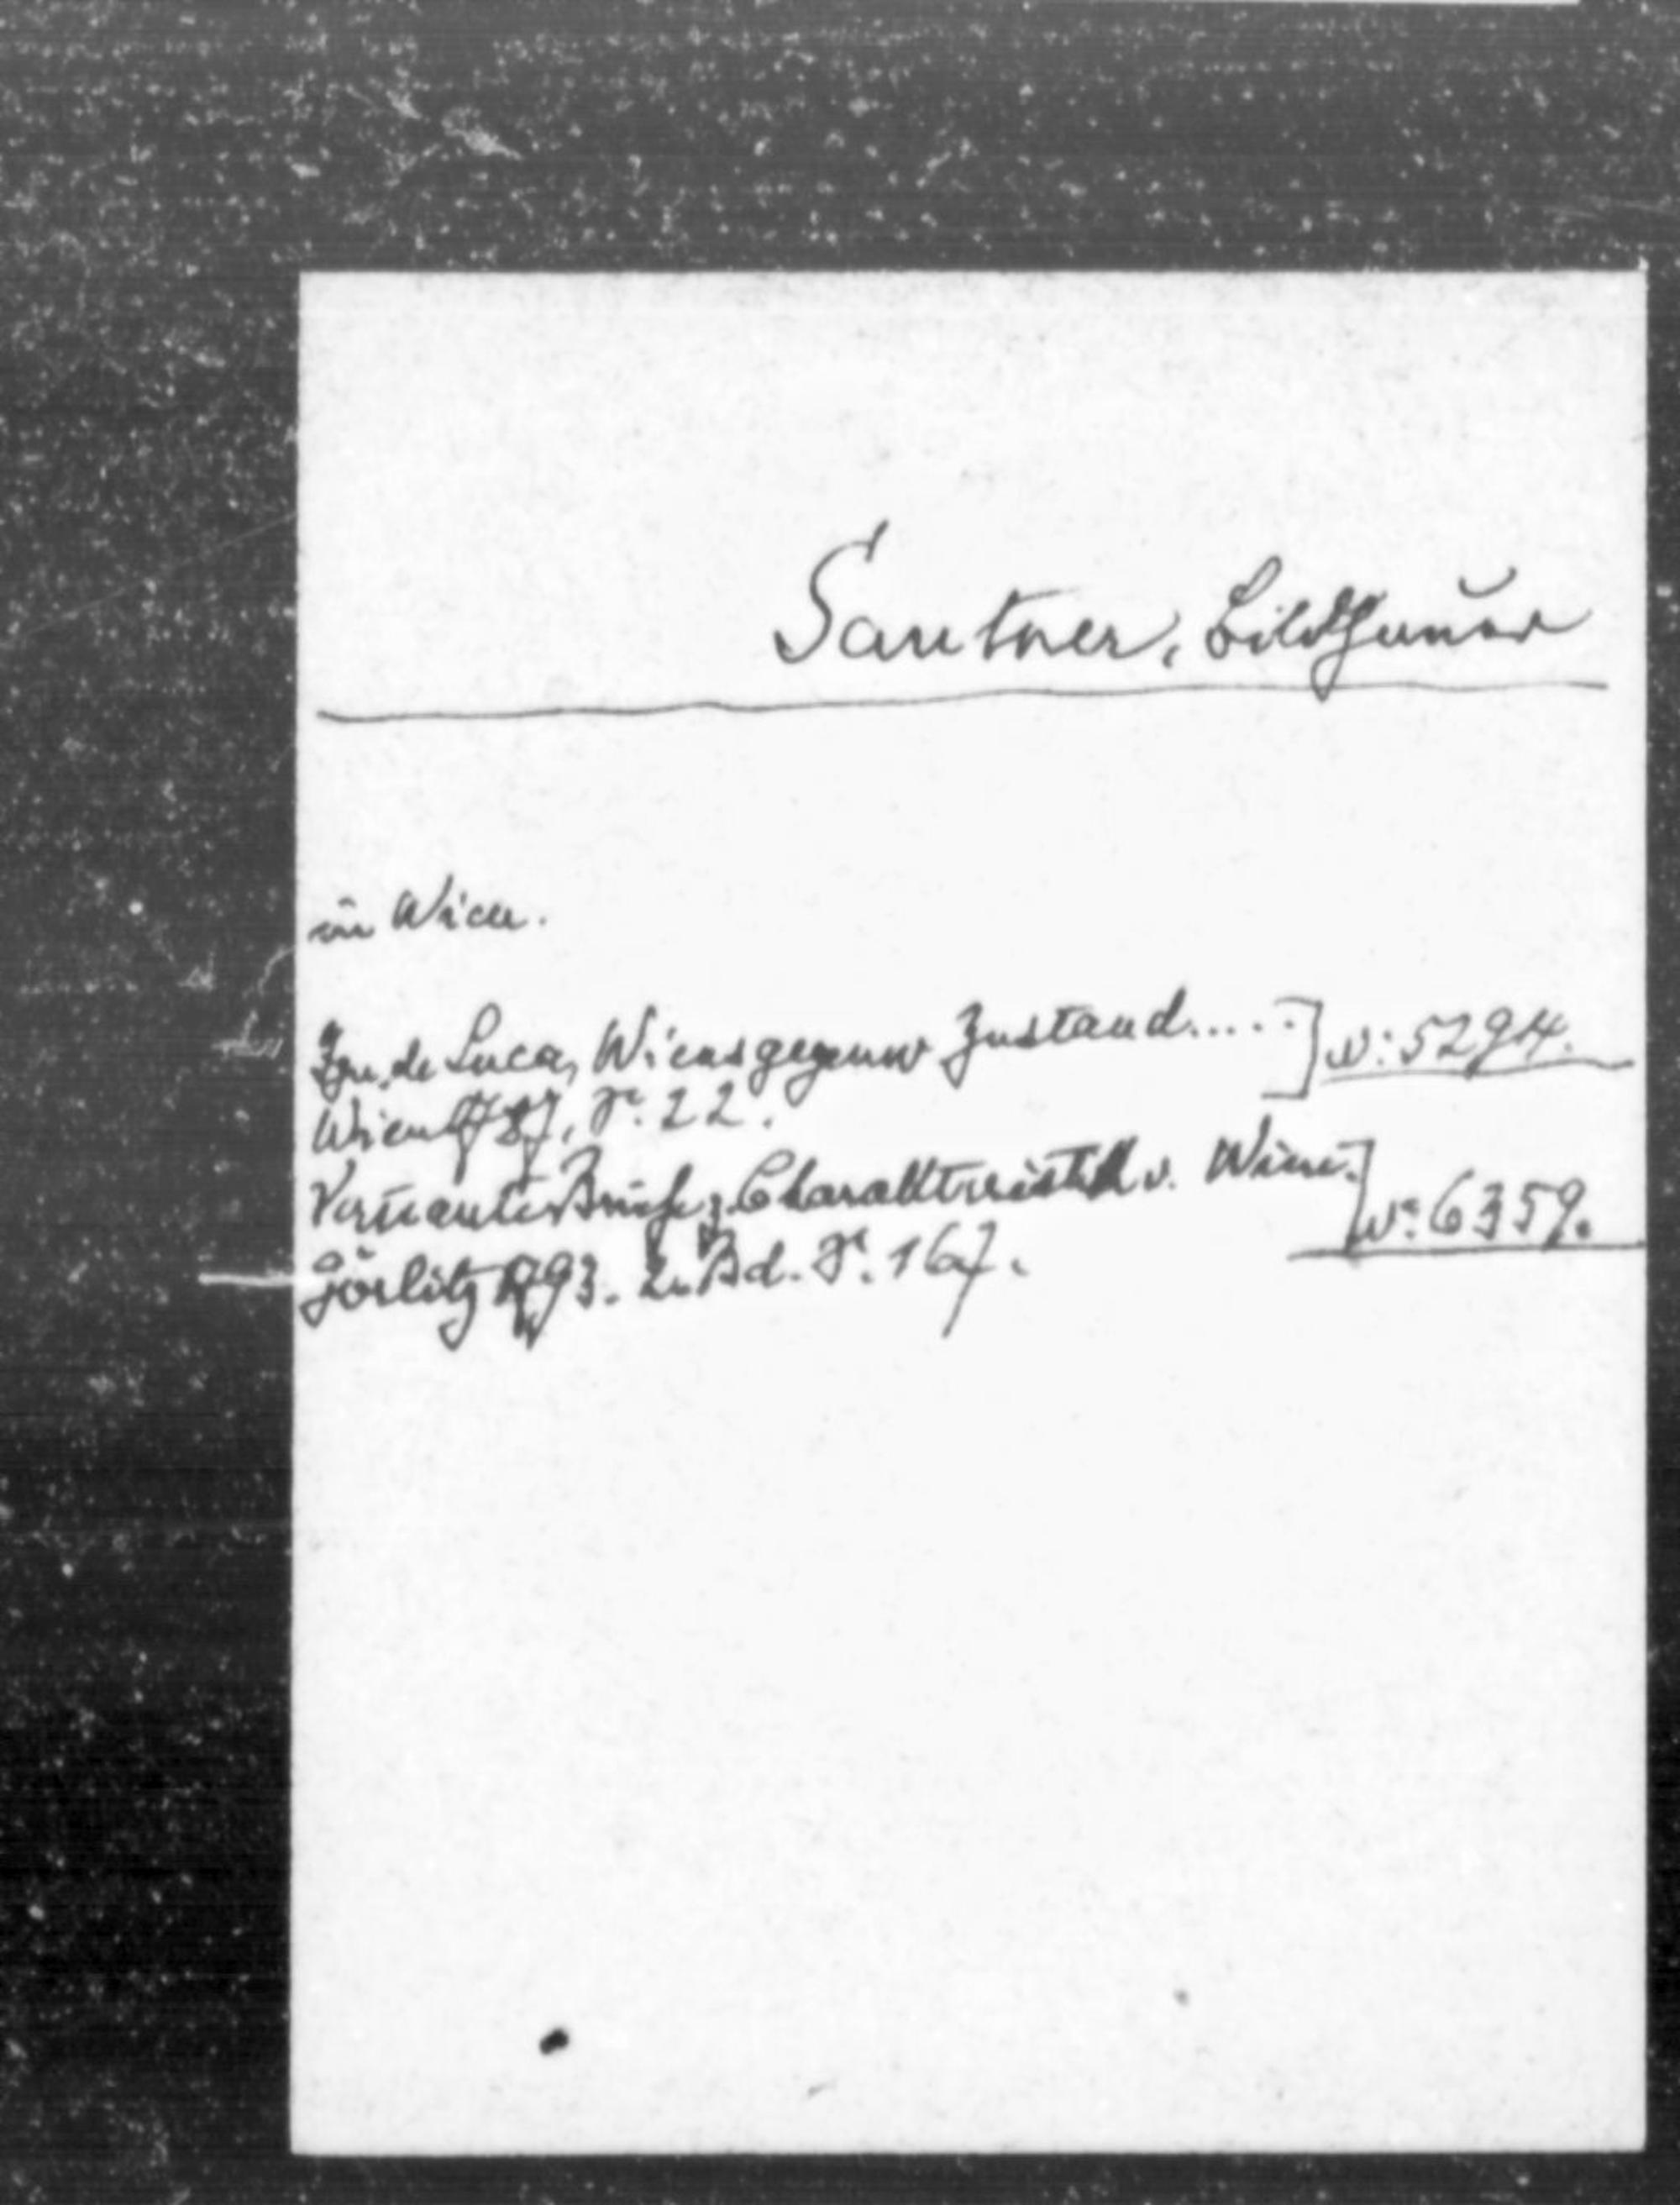 Santner, Bildhauer
in Wien.
Ign. de Luca, Wiens gegenw Zustand..... ] N: 5294.
Wien 1787, S. 22.
Vertraute Briefe z. Charakteristik v. Wien. ] N: 6359.
Görlitz 1793. 2. Bd. S. 167.